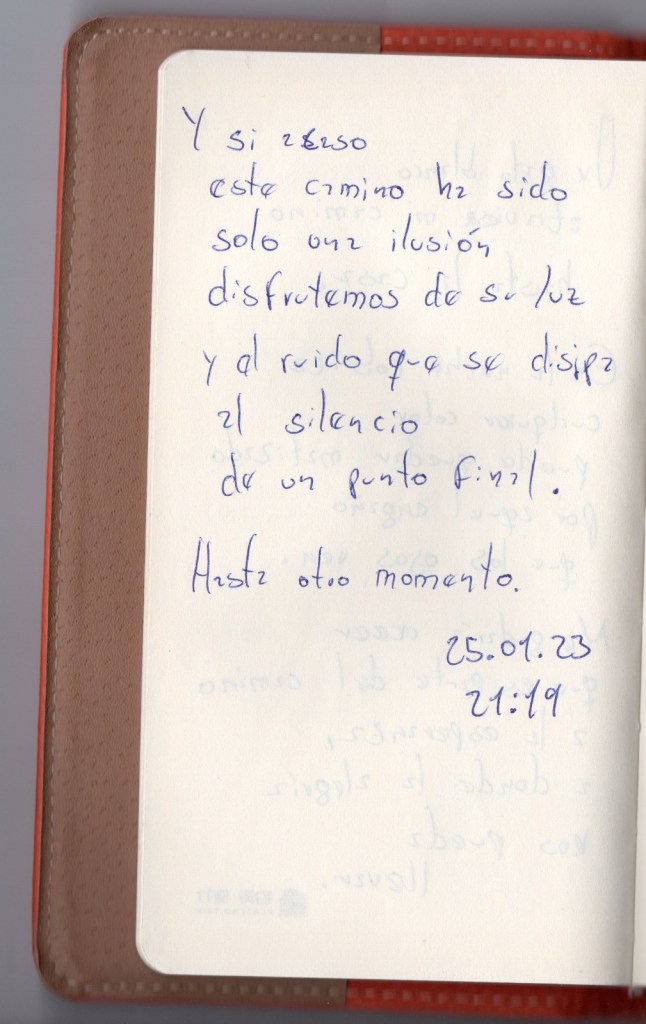 Y si acaso
este camino ha sido
solo una ilusión
disfrutemos de su luz
y el ruido que se disipa
al silencio
de un punto final.
Hasta otro momento.
25.01.23
21:19